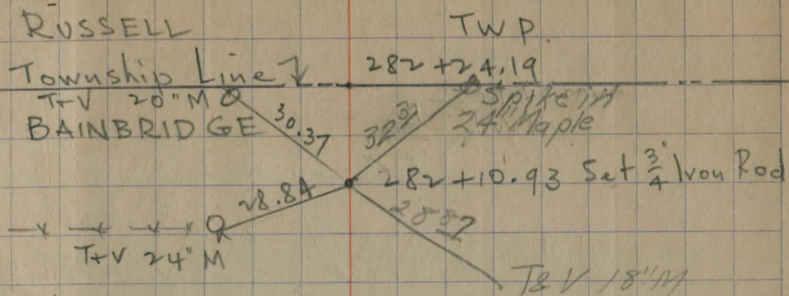 RUSSELL TWP.
Township Line 282 + 24.19
T+V 20" M Spike in
BAINBRIDGE 30.37 32 24" Maple
282 + 10.93 Set 3/4 Iron Rod
28.84 2887
T+V 24" M
T&V 18" M